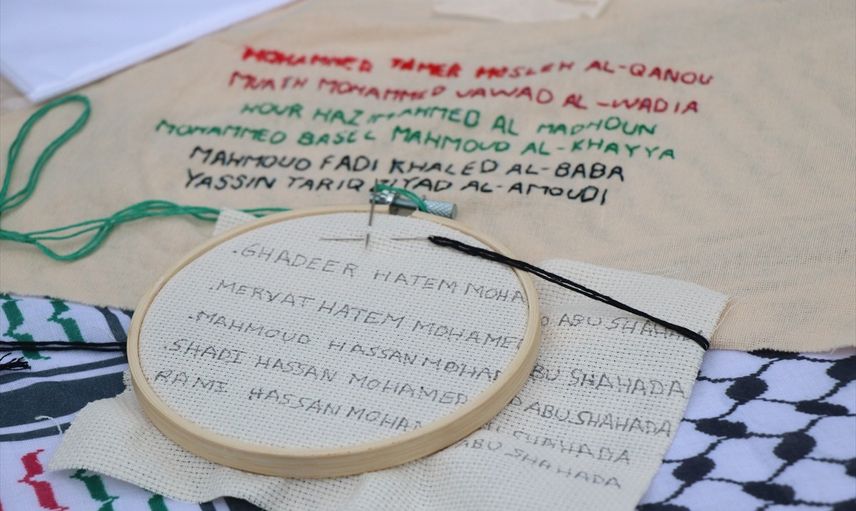 MOHAMMED TAMER MOSLEH AL-QANOU
MUATH MOHAMMED JAWAD AL-WADIA
NOUR HAZIM AHMED AL MADHOUN
MOHAMMED BASEL MAHMOUD AL-KHAYYA
MAHMOUD FADI KHALED AL-BABA
YASSIN TARIQ ZIYAD AL-AMOUDI
.GHADEER HATEM MOHA ABU SHAHADA
.MERVAT HATEM MOHAMED ABU SHAHADA
.MAHMOUD HASSAN MOHAM ABU SHAHADA
.SHADI HASSAN MOHAMED SHAHADA
RAMI HASSAN MOHAM ABU SHAHADA